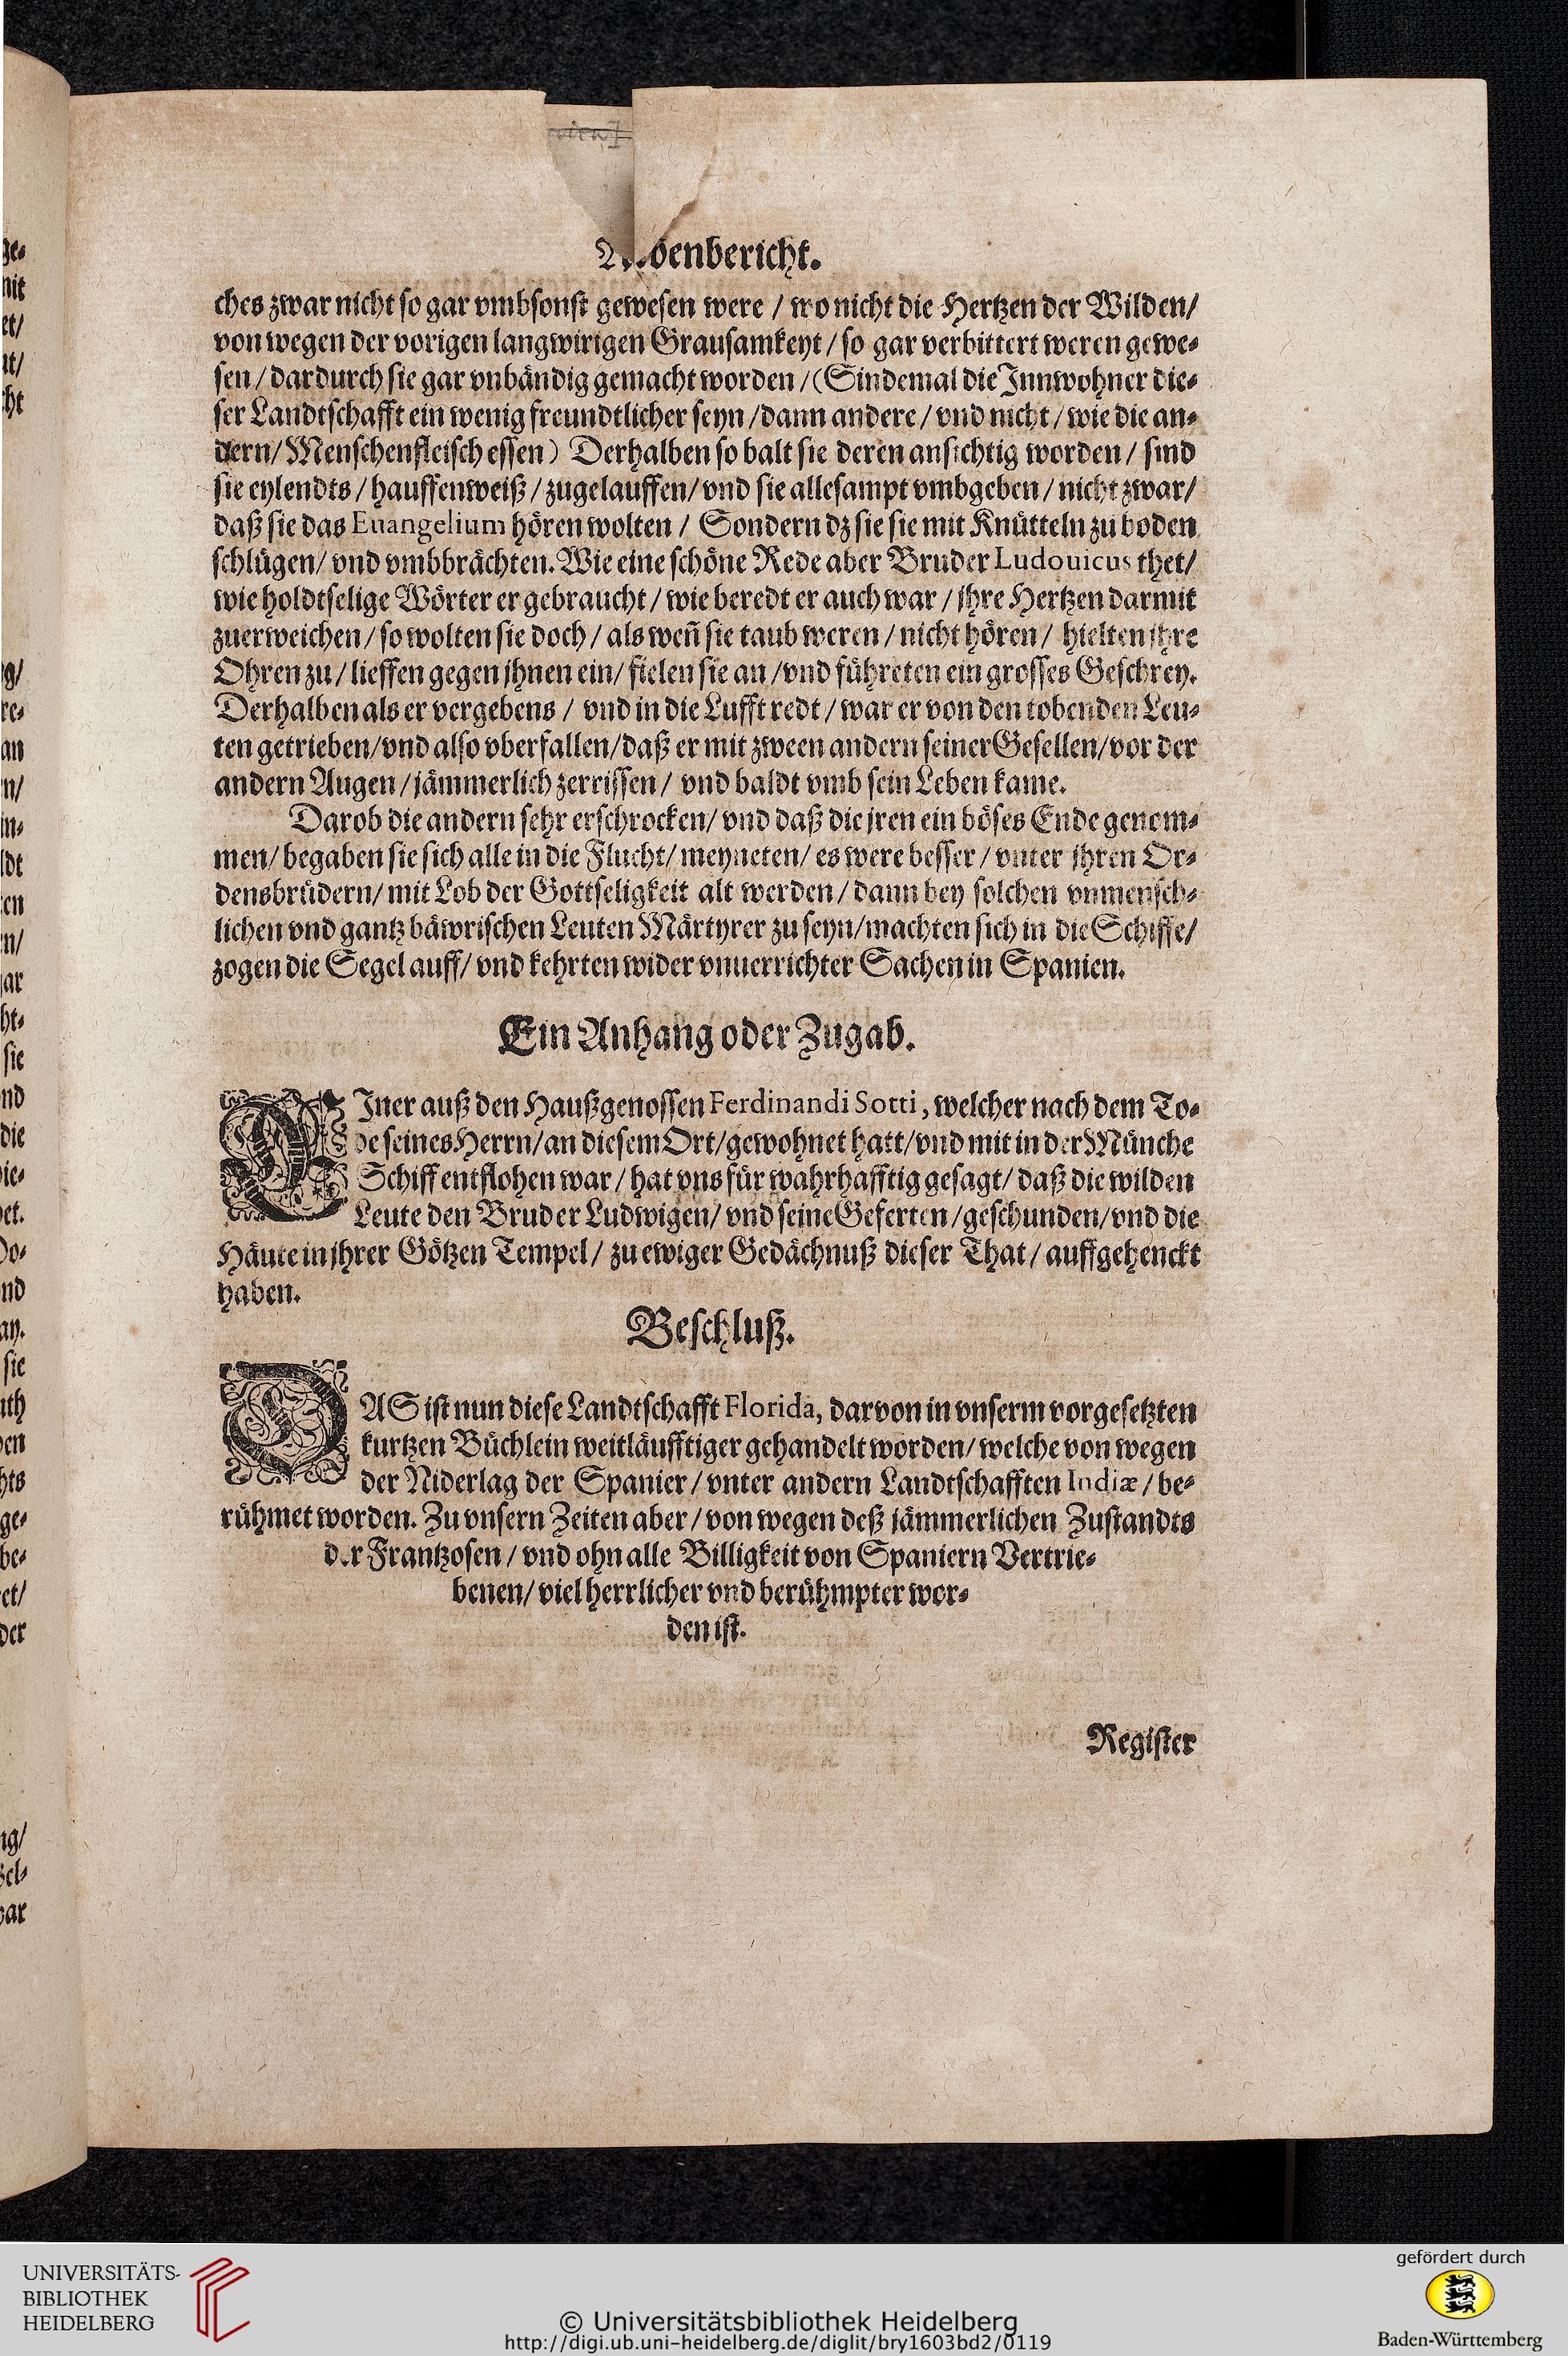 denbericht.
ches zwar nicht so gar vmbsonst gewesen were / wo nicht die Hertzen der Wilden/
von wegen der vorigen langwirigen Grausamkeyt / so gar verbittert weren gewe⸗
sen / dardurch sie gar vnbändig gemacht worden / (Sindemal die Jnnwohner die⸗
ser Landtschafft ein wenig freundtlicher seyn / dann andere / vnd nicht / wie die an⸗
dern/ Menschenfleisch essen) Derhalben so balt sie deren ansichtig worden / sind
sie eylendts / hauffenweiß / zugelauffen/ vnd sie allesampt vmbgeben / nicht zwar/
daß sie das Euangelium hören wolten / Sondern dz sie sie mit Knütteln zu boden
schlügen/ vnd vmbbrächten. Wie eine schöne Rede aber Bruder Ludouicus thet/
wie holdtselige Wörter er gebraucht / wie beredt er auch war / jhre Hertzen darmit
zuerweichen / so wolten sie doch / als weñ sie taub weren / nicht hören / hielten jhre
Ohren zu / lieffen gegen jhnen ein/ fielen sie an / vnd führeten ein grosses Geschrey.
Derhalben als er vergebens / vnd in die Lufft redt / war er von den tobenden Leu⸗
ten getrieben/ vnd also vberfallen/ daß er mit zween andern seiner Gesellen/ vor der
andern Augen / jämmerlich zerrissen / vnd baldt vmb sein Leben kame.
Darob die andern sehr erschrocken/ vnd daß die jren ein böses Ende genom⸗
men/ begaben sie sich alle in die Flucht/ meyneten/ es were besser / vnter jhren Or⸗
densbrüdern/ mit Lob der Gottseligkeit alt werden / dann bey solchen vnmensch⸗
lichen vnd gantz bäwrischen Leuten Märtyrer zu seyn/ machten sich in die Schiffe/
zogen die Segel auff/ vnd kehrten wider vnuerrichter Sachen in Spanien.
Ein Anhang oder Zugab.
EJner auß den Haußgenossen Ferdinandi Sotti, welcher nach dem To⸗
de seines Herrn/ an diesem Ort/ gewohnet hatt/ vnd mit in der Münche
Schiff entflohen war / hat vns für wahrhafftig gesagt/ daß die wilden
Leute den Bruder Ludwigen/ vnd seine Geferten / geschunden/ vnd die
Häute in jhrer Götzen Tempel / zu ewiger Gedächnuß dieser That / auffgehenckt
haben.
Beschluß.
DAS ist nun diese Landtschafft Florida, darvon in vnserm vorgesetzten
kurtzen Büchlein weitläufftiger gehandelt worden/ welche von wegen
der Niderlag der Spanier / vnter andern Landtschafften Indiæ / be⸗
rühmet worden. Zu vnsern Zeiten aber / von wegen deß jämmerlichen Zustandts
der Frantzosen / vnd ohn alle Billigkeit von Spaniern Vertrie⸗
benen/ viel herrlicher vnd berühmpter wor⸗
den ist.
Register
UNIVERSITÄTS-
BIBLIOTHEK
HEIDELBERG
© Universitätsbibliothek Heidelberg
http://digi.ub.uni-heidelberg.de/diglit/bry1603bd2/0119
gefördert durch
Baden-Württemberg